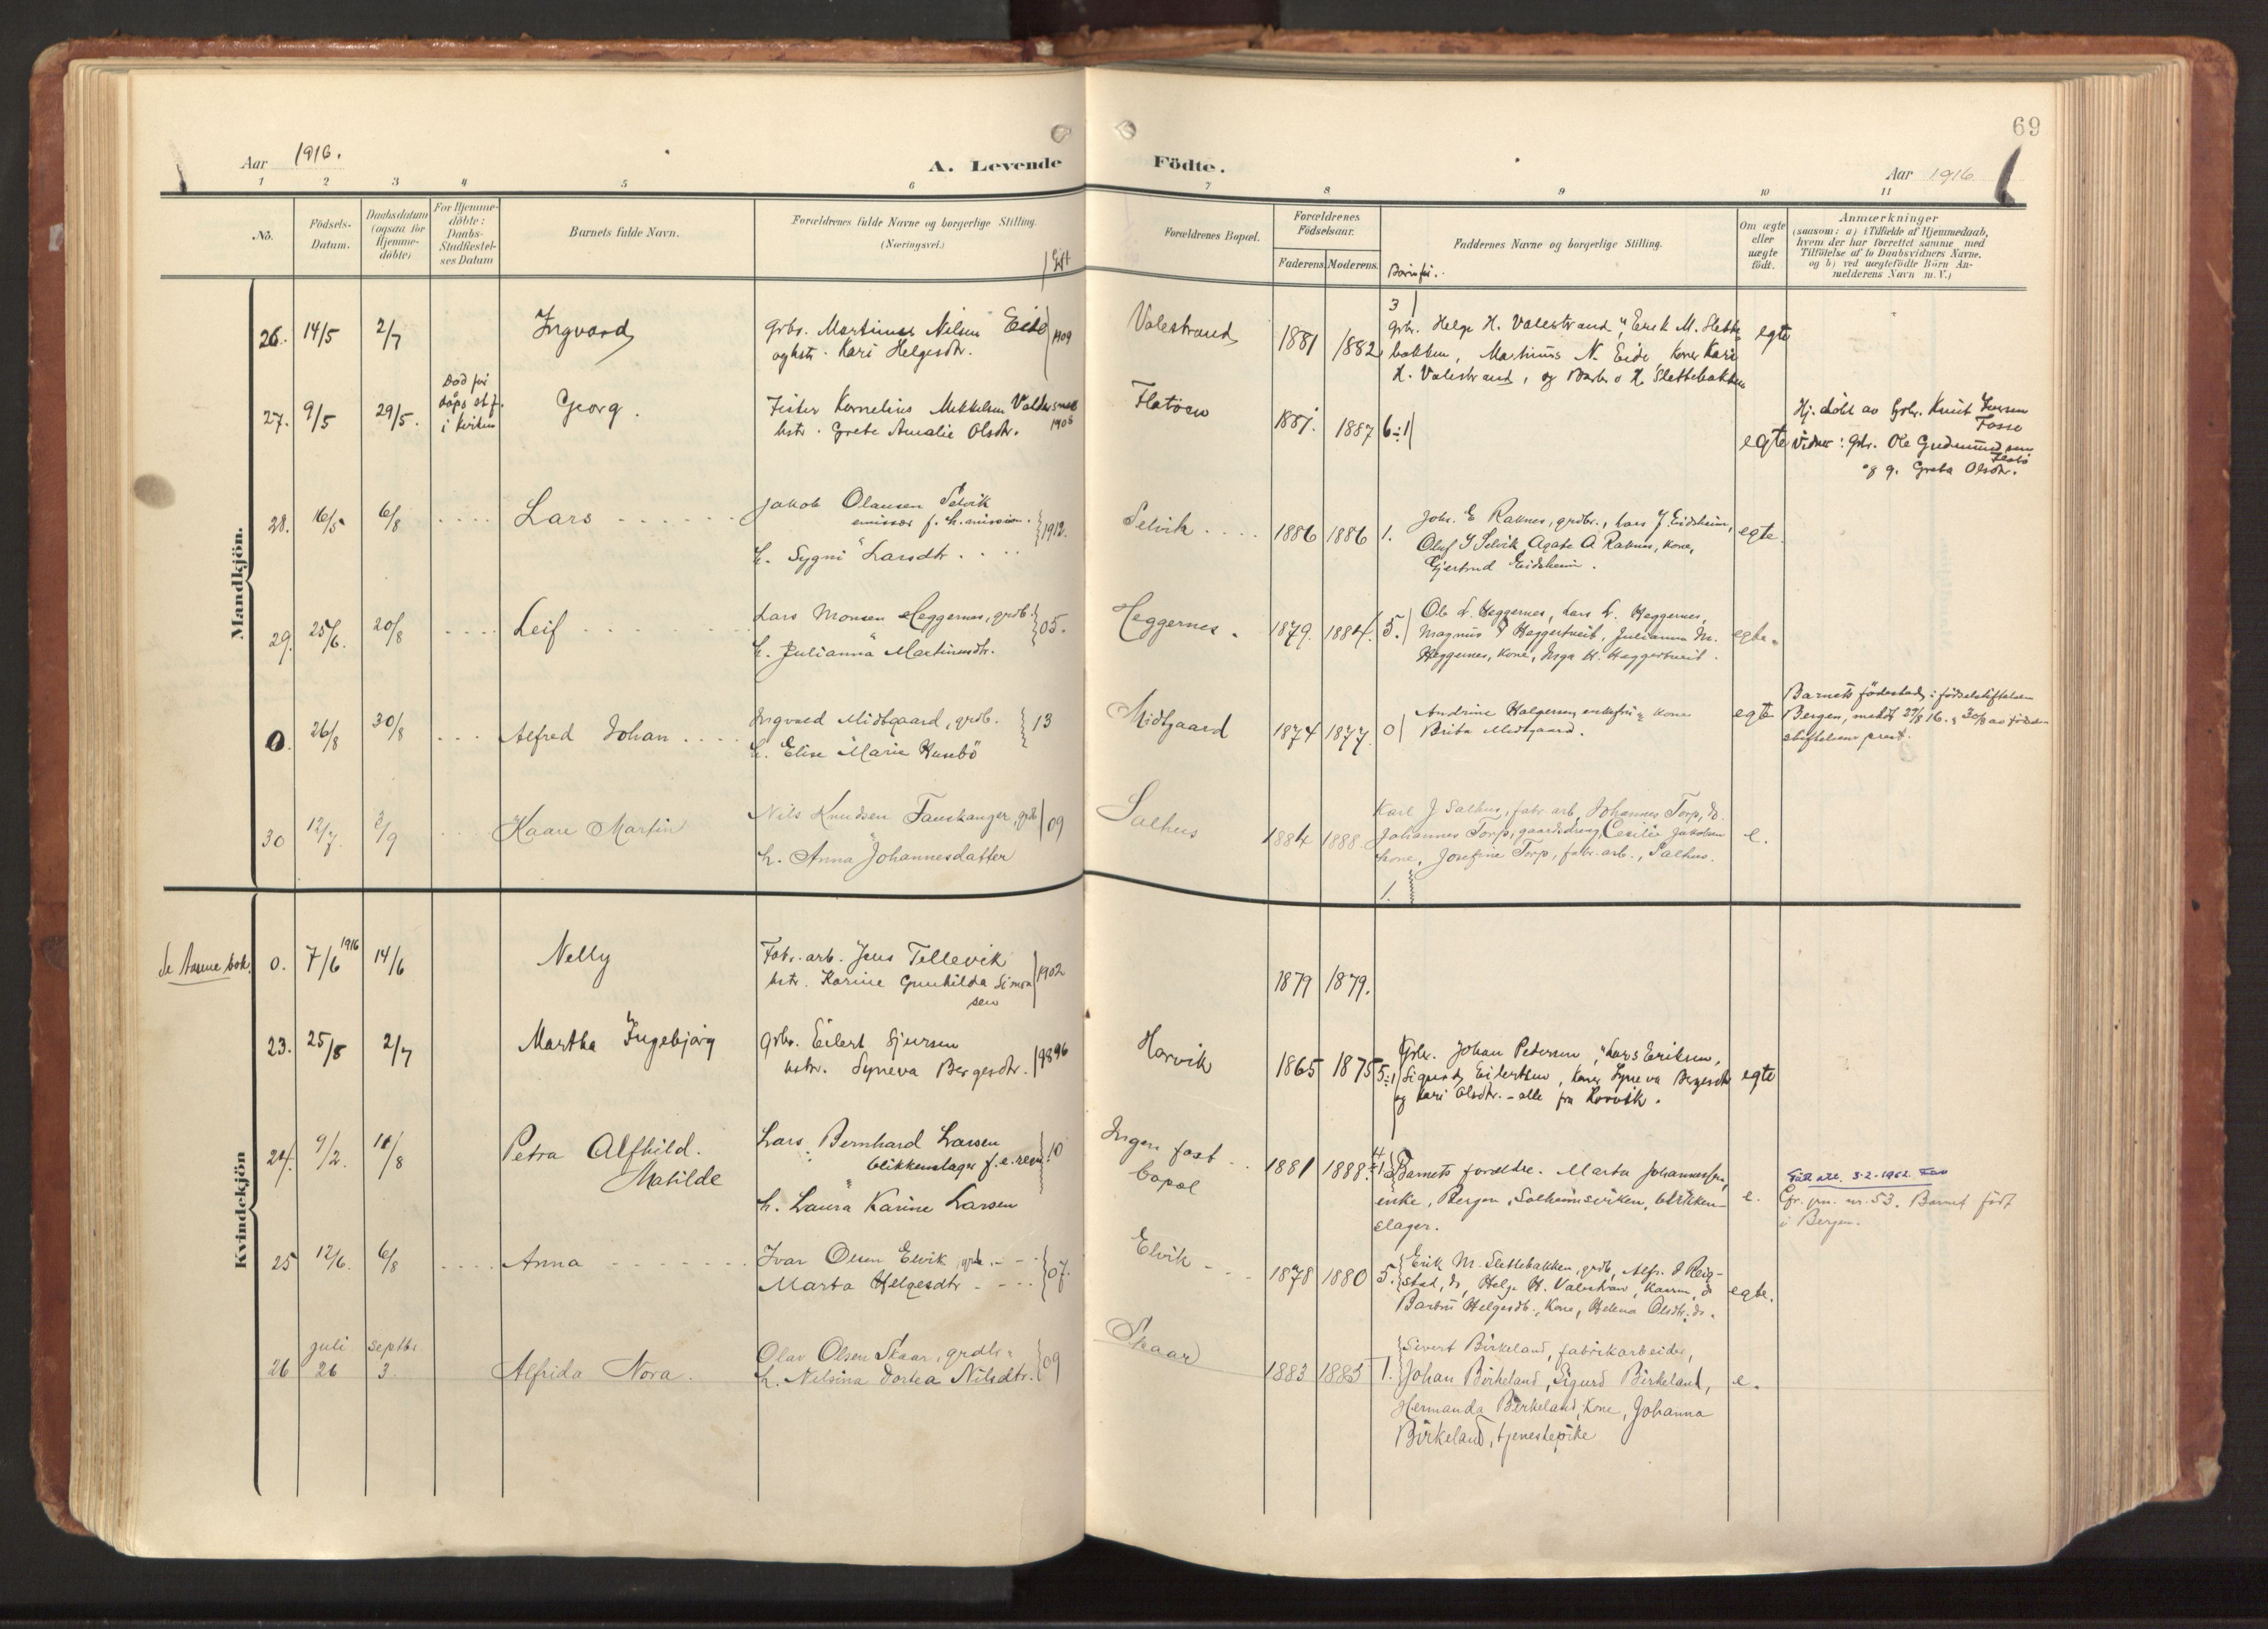 69
Aar 1916.
A. Levende Fødte.
Aar 1916.
1 2 3 4 5 6 7 8 9 10 11
No.
Födsels-
Datum.
Daabsdatum
(ogsaa for
Hjemme-
döbte)
For Hjemme-
döbte:
Daabs-
Stadfæstel-
ses Datum
Barnets fulde Navn.
Forældrenes fulde Navne og borgerlige Stilling.
(Næringsvei.)
Forældrenes Bopæl.
Forældrenes
Födselsaar.
Faderens. Moderens.
Faddernes Navne og borgerlige Stilling.
Om ægte
eller
uægte
födt.
Anmærkninger
(saasom: a) i Tilfælde af Hjemmedaab,
hvem der har forrettet samme med
Tilföielse af to Daabsvidners Navne,
og b) ved uægtefödte Börn An-
melderens Navn m. V.)
Mandkjön.
26. 14/5 2/7 Ingvard
Grbr. Martinus Nilsen Eide
og hstr. Kari Helgesdtr.
1909
Valestrand 1881 1882
3
Grbr. Helge H. Valestrand, " Erik M. Slette-
bakken, Martinus N. Eide, Koner Kari
H. Valestrand, og Barbro H. Slettebakken
egte
27. 9/5 29/5.
Död før
dåps stf.
i kirken
Georg.
Fisker Kornelius Mikkelsen Valdersnes
hstr. Grete Amalie Olsdtr.
1908
Flatöen 1881. 1887 6:1
egte
Hj. döbt av Grbr. Knut Iversen
Fosse
Vidner: Gbr. Ole Gudmundsen
Flatö
og g. Greta Olsdtr.
28. 16/5 6/8 Lars
Jakob Olausen Selvik
emissær f. h. mission.
h. Sygni Larsdtr.
1912.
Selvik 1886 1886 1.
Johs. E Raknes, grdbr., Lars J. Eidsheim,
Oluf I Selvik, Agate A Raknes, kone,
Gjertrud Eidsheim.
egte.
29. 25/6. 20/8 Leif
Lars Monsen Heggernes, grdb.
h. Julianna Martinusdtr.
05.
Heggernes. 1879. 1884. 5.
Ole L. Heggernes, Lars L. Heggernes,
Magnus Heggertveit, Julianna M.
Heggernes, kone, Inga H. Heggertveit.
egte.
0. 26/8 30/8 Alfred Johan
Ingvald Midtgaard, grdb.
h. Elise Marie Husebö
13
Midtgaard 1874 1877. 0
Andrine Halgersen, enkefru, kone
Brita Midtgaard.
egte
Barnets födested i födselsstiftelsen
Bergen, meldt 29/8 16. 30/8 av födsels-
stiftelsens prest.
30 12/7. 3/9 Kaare Martin
Nils Knudsen Fauskanger, grdb
h. Anna Johannesdatter
09
Salhus 1884 1888.
Karl J Salhus, fabr. arb, Johannes Torp, do.
Johannes Torp, gaardsdreng, Cecilie Jakobsen
kone, Josefine Torp, fabr. arb., Salhus.
1.
e.
Kvindekjön
0. 7/6 1916 14/6 Nelly
Fabr. arb. Jens Tellevik
hstr. Karine Gunhilda Simon
sen
1902
1879 1879.
23. 25/5 2/7 Martha Ingebjörg
Grbr. Eilert Sjursen
hstr. Syneva Bergesdtr.
1896
Horvik 1865 1875 5:1
Grbr. Johan Pedersen, " Lars Eriksen,
Sigurd Eilertsen, Koner Syneva Bergesdtr
og Kari Olsdtr. - alle fra Horvik.
egte
24. 9/2. 10/8
Petra Alfhild.
Matilde
Lars Bernhard Larsen
blikkenslager
h. Laura Karine Larsen
10
Ingen fast
bopæl
1881 1888.
Barnets foreldre. Marta Johannessen,
enke, Bergen, Solheimsviken, blikken-
slager.
e.
3-2-1962.
Cfr. nr. 53. Barnet født
i Bergen.
25 12/6. 6/8 Anna
Ivar Olsen Elvik, grdb.
Marta Helgesdtr
07.
Elvik 1878 1880 5.
Erik M. Slettebakken, grdb, Alfr. O Reig-
stad, do, Helge H. Valestrand,
Barbru Helgesdtr., kone, Helena Olsdtr. do.
egte.
26
juli septbr.
26 3.
Alfrida Nora.
Olav Olsen Skaar, grdbr.
h. Nilsina Dortea Nilsdtr.
09
Skaar 1883 1885 1.
Sivert Birkeland, fabrikarbeider,
Johan Birkeland, Sigurd Birkeland,
Hermanda Birkeland, kone, Johanna
Birkeland, tjenestepike
e.